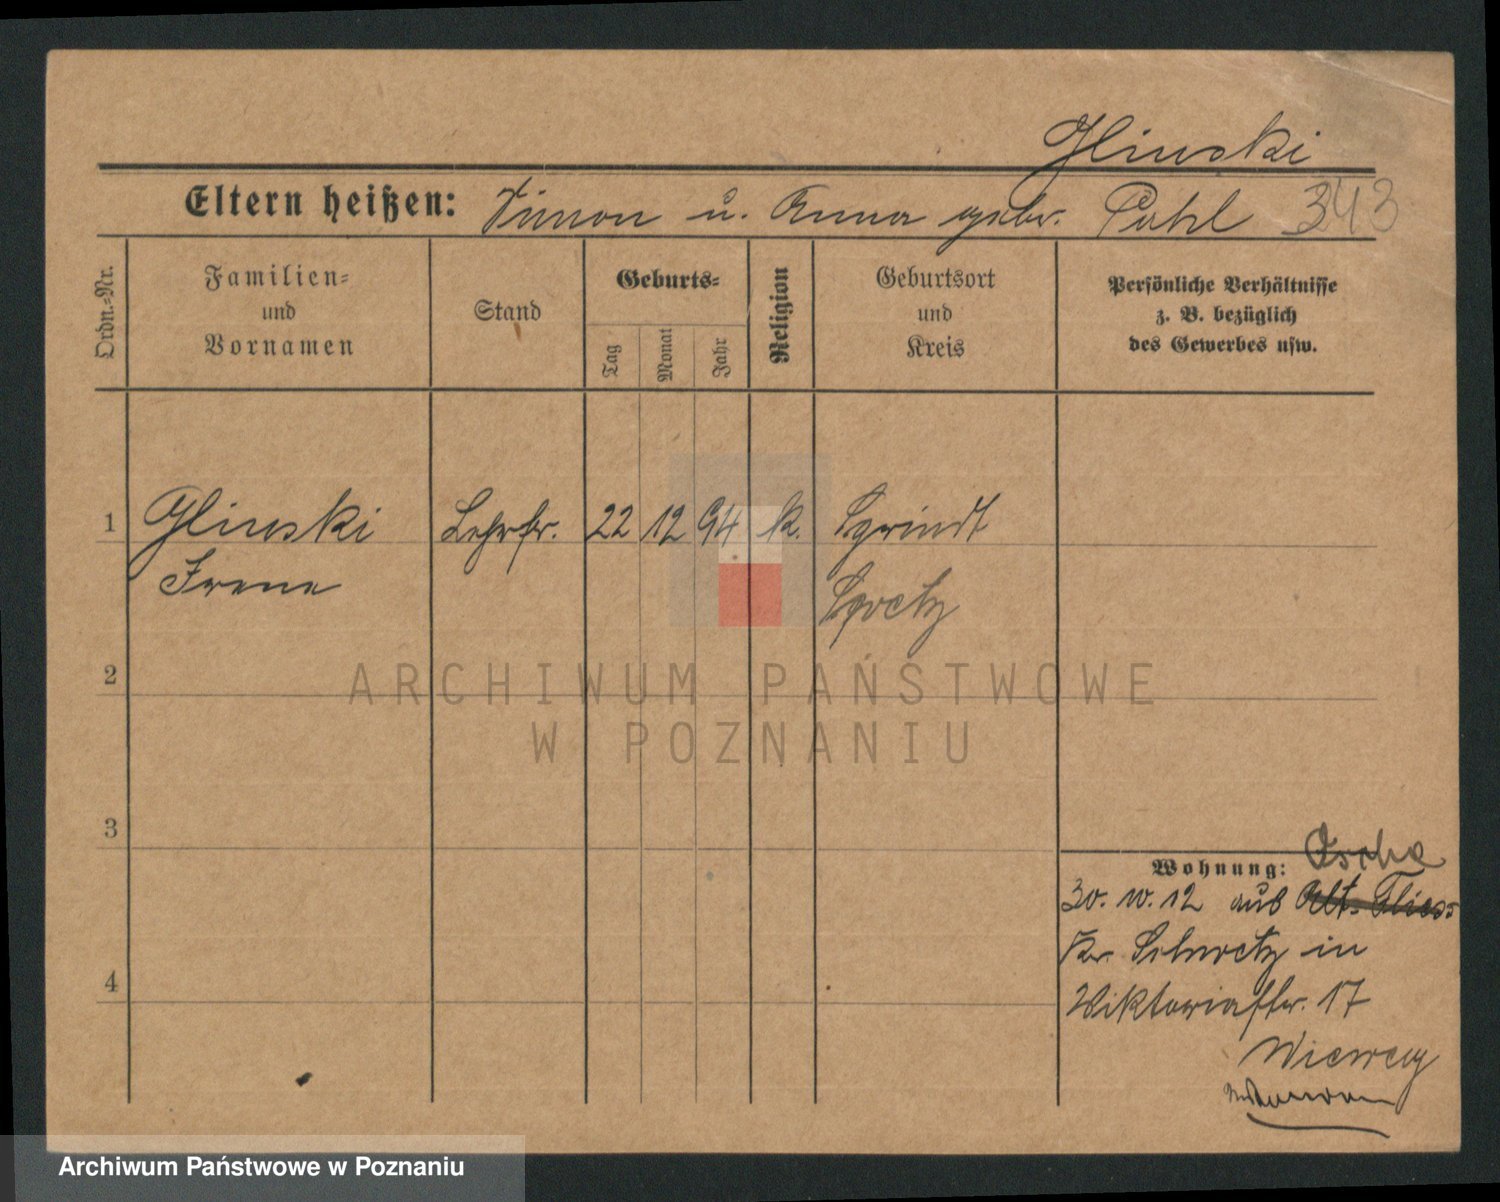 Glinski
Eltern heißen: Simon u. Anna gebr. Pahl 343
Ordn.-Nr.
Familien-
und
Vornamen
Stand
Geburts-
Tag
Monat
Jahr
Religion
Geburtsort
und
Kreis
Persönliche Verhältnisse
z. B. bezüglich
des Gewerbes usw.
1 Glinski Lehrfr. 22 12 94 k.
Irene
2
3
4
Wohnung: Osche
30. 10. 12 aus Alt-Fliess
Kr. Schwetz in
Viktoriastr. 17
ARCHIWUM PAŃSTWOWE
W POZNANIU
Archiwum Państwowe w Poznaniu